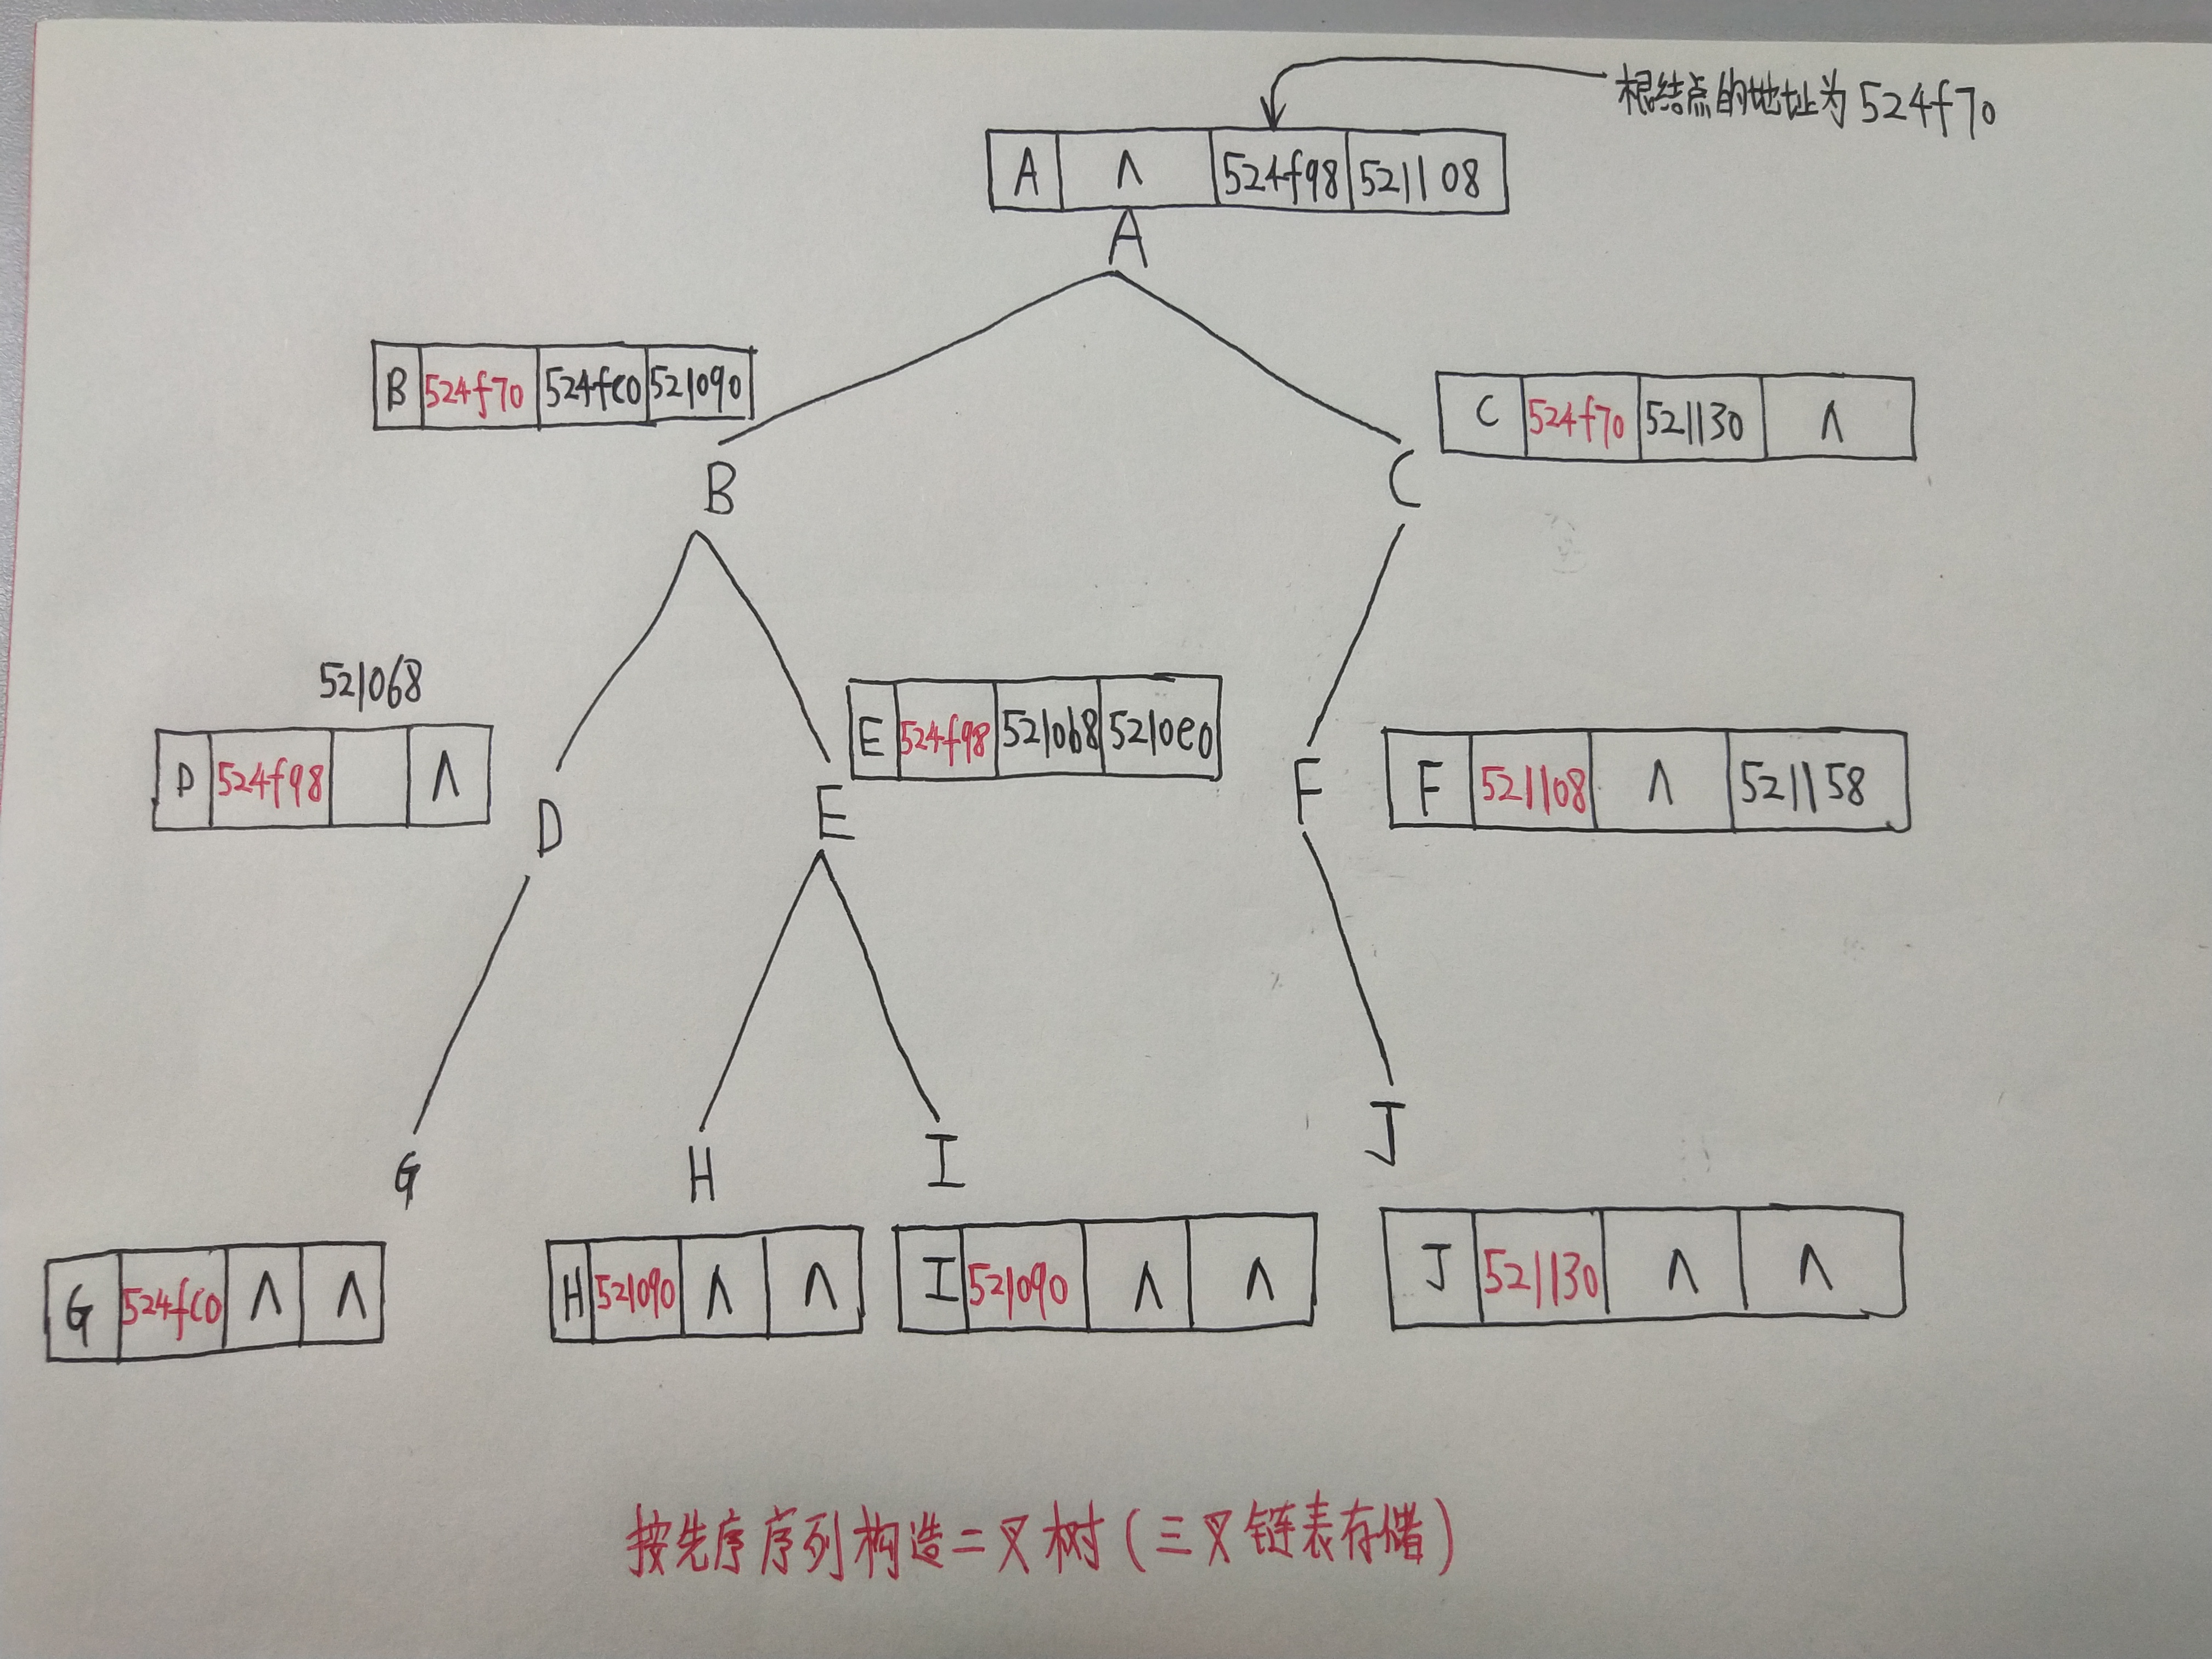 根结点的地址为524f70
A ∧ 524f98 521108
A
B 524f70 524fc0 521090
C 524f70 521130 ∧
B
C
521068
D 524f98 ∧
E 524f98 521068 5210e0
F 521108 ∧ 521158
D
E
F
G
H
I
J
G 524fc0 ∧ ∧
H 521090 ∧ ∧
I 521090 ∧ ∧
J 521130 ∧ ∧
按先序序列构造二叉树(三叉链表存储)